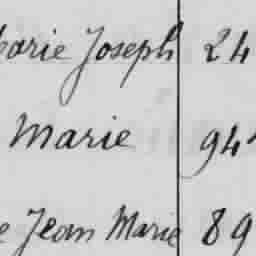 Marie Joseph 24
Marie 94
Jean Marie 89